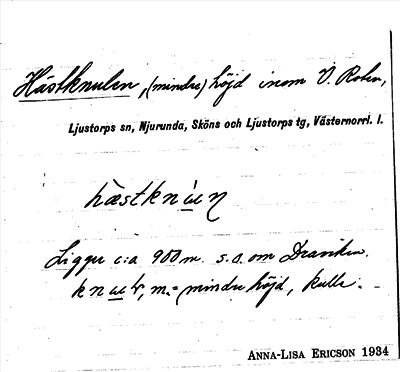 Hästknulen, (mindre) höjd inom V. Roten,
Ljustorps sn, Njurunda, Sköns och Ljustorps tg, Västernorrl. l.
hæstknùl̥n
Ligger c:a 900 m. s.o. om Draviken.
knul, m. = mindre höjd, kulle. -
ANNA-LISA ERICSON 1934